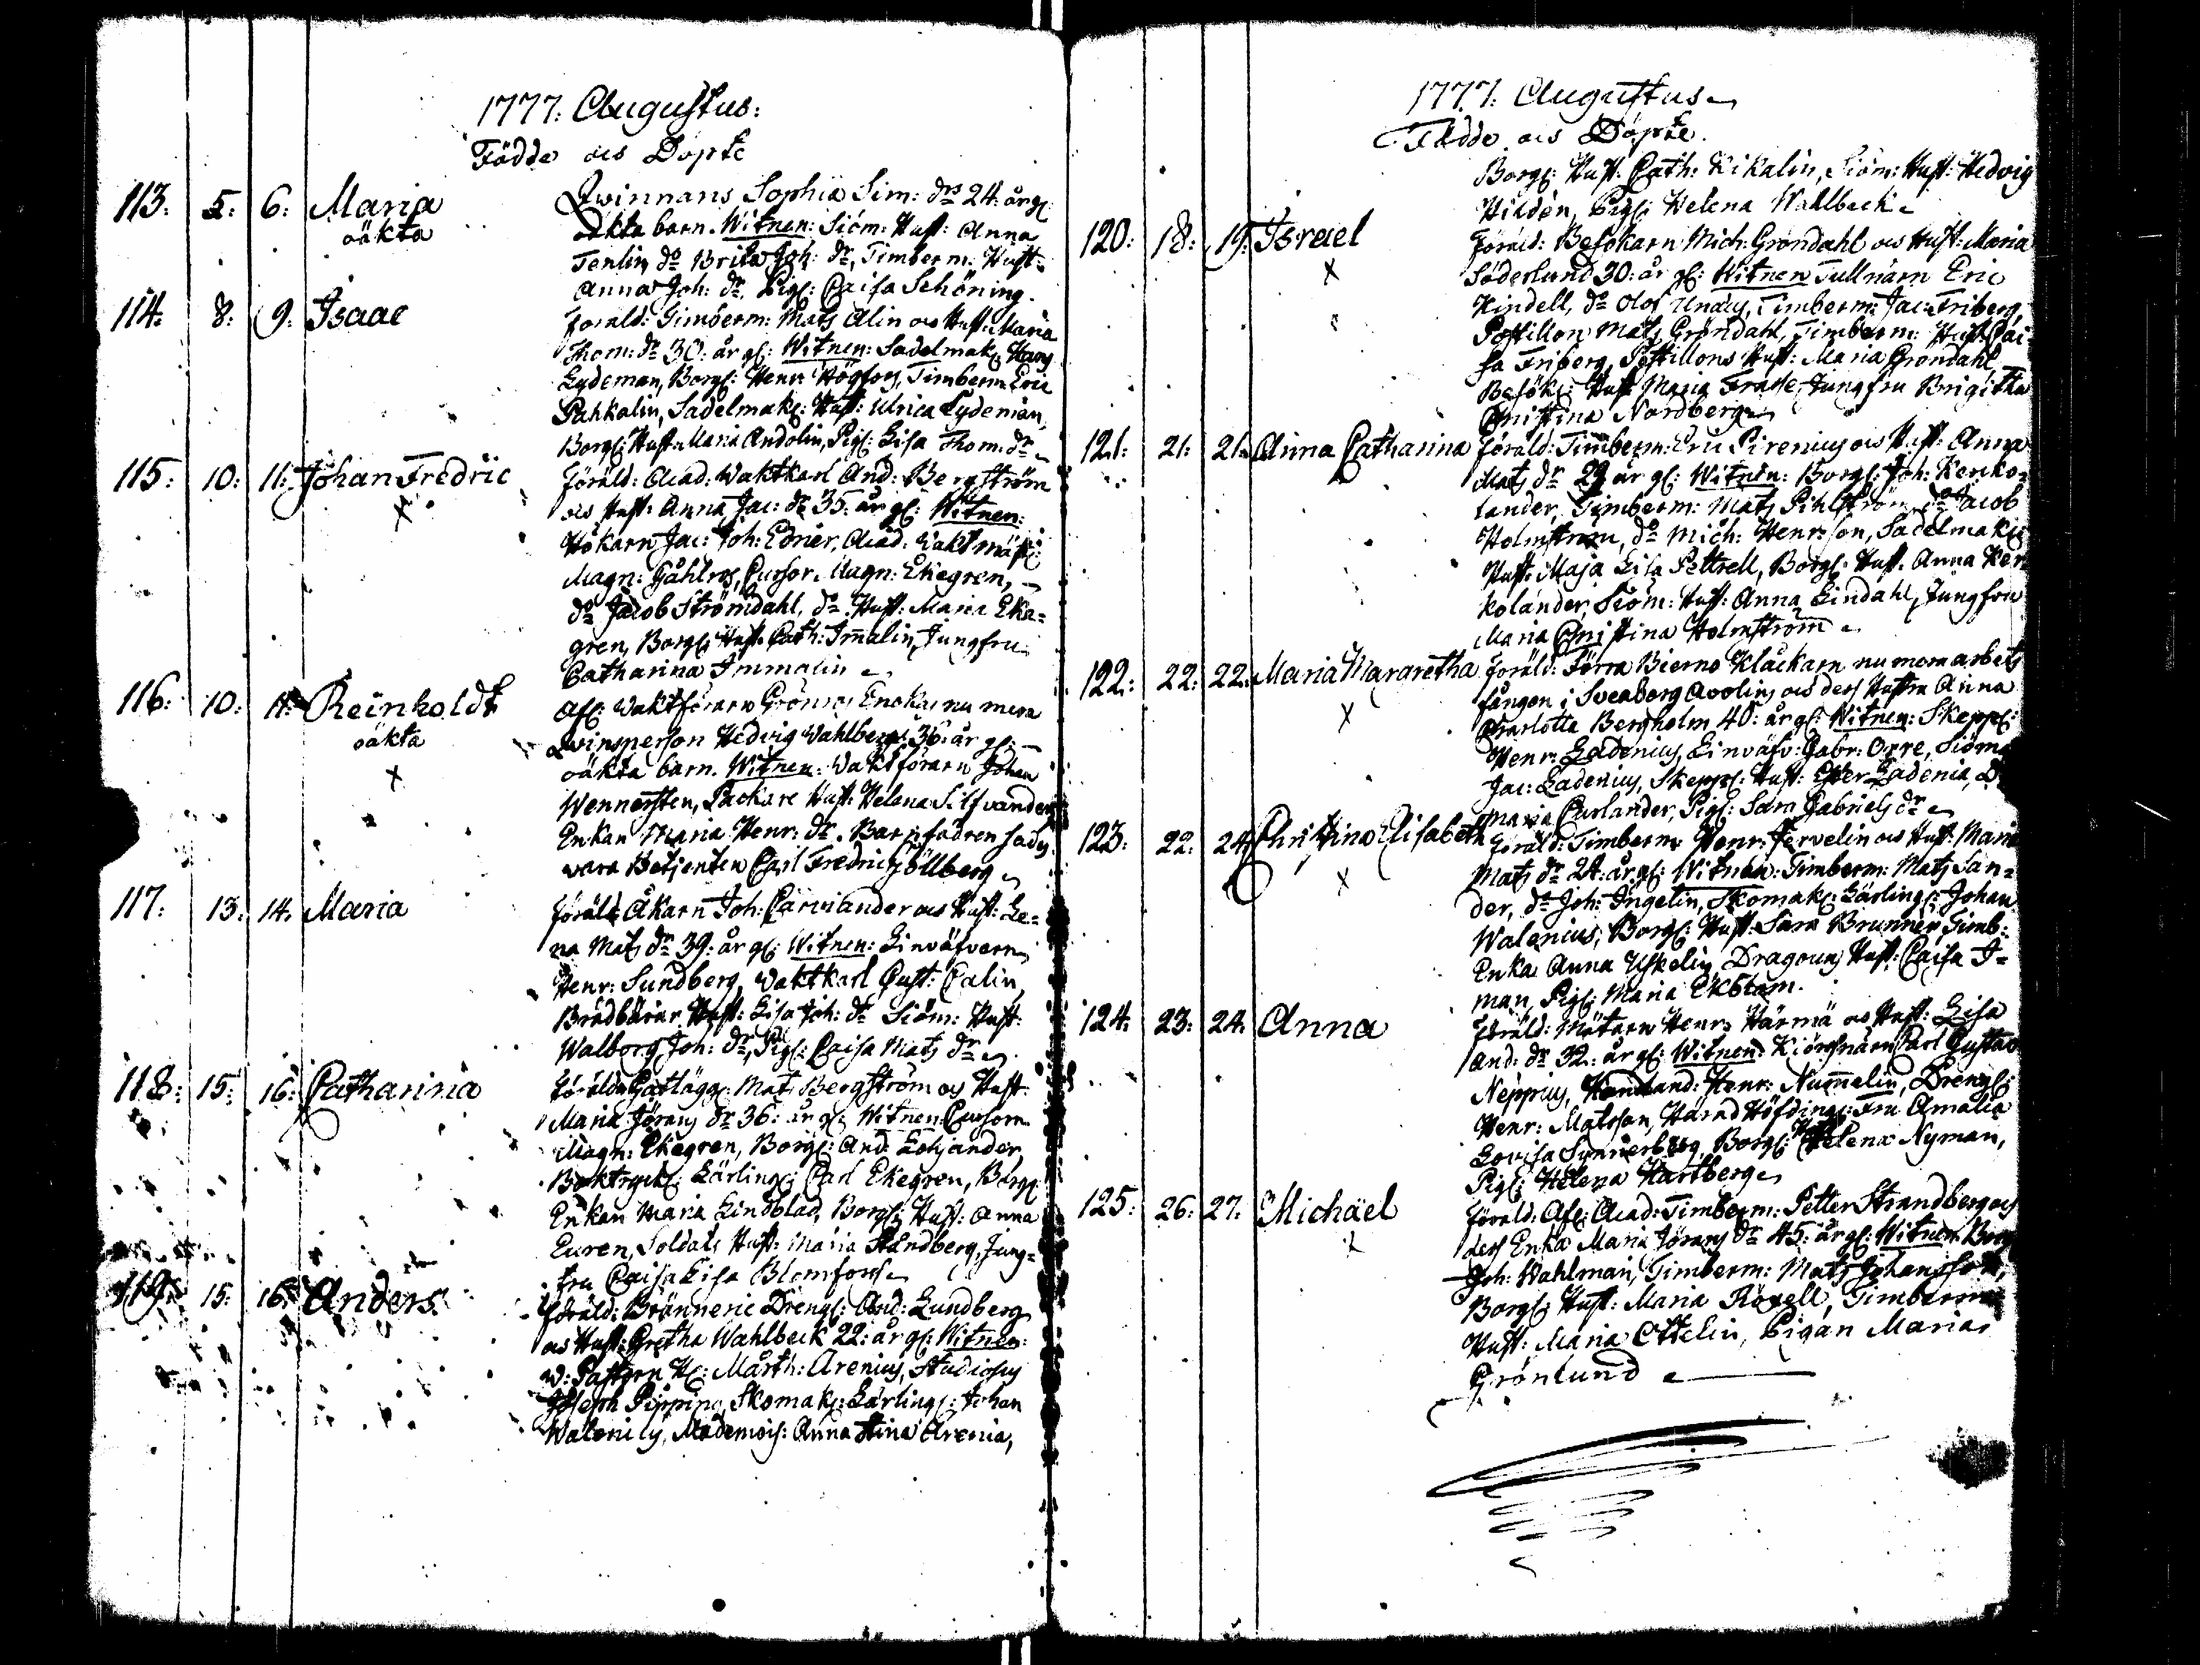 1777. Augustus:
Födde och Döpte
113. 5. 6. Maria Qwinnans Sophia Sim: drs 24. år gl:
oäkta oäkta barn. Witnen: Siöm: Hust: Anna
Tenlin, do Brita Joh: dr, Timberm: Hust:
Anna Joh: dr, Pig: Caisa Schöning.
114. 8. 9. Isaac Föräld: Timberm: Mats Alin och Hust: Maria
Thom: dr 30. år gl: Witnen: Sadelmak: Hans
Lydeman, Borg: Henr: Högfors, Timberm: Eric
Pahkalin, Sadelmak: Hust: Ulrica Lydeman,
Borg: Hust: Maria Andolin, Pig: Lisa Thom: dr
115. 10. 11. Johan Fredric Föräld: Acad: Waktkarl And: Bergström
x och Hust: Anna Jac: dr 35. år gl: Witnen:
Hökarn Jac: Joh: Edner, Acad: Waktmäst:
Magn: Gåhlros, Cursor Magn: Ekegren,
do Jacob Strömdahl, do Hust: Maria Eke=
gren, Borg: Hust: Cath: Imalin, Jungfru
Catharina Immalin
116. 10. 11. Reinholdt Afl: Waktförarn Grönros Enka nu mera
oäkta Qwinsperson Hedvig Wahlberg 36. år gl:
x oäkta barn. Witnen: Waktförarn Johan
Wennersten, Packare Hust: Helena Silfvander
Enkan Maria Henr: dr. Barnfadren sades
vara Betjenten Carl Fredric Sjöllberg
117. 13. 14. Maria Föräld: Åkarn Joh: Carviander och Hust: Le=
na Mats dr 39. år gl: Witnen: Linväfvarn
Henr: Sundberg, Waktkarl Gust: Calin,
Brädbärar Hust: Lisa Joh: dr Siöm: Hust:
Walborg Joh: dr, Pig: Caisa Mats dr
118. 15. 16. Catharina Föräld: Gatlägg: Mats Bergström och Hust:
Maria Jörans dr 36. år gl: Witnen: Cursorn
Magn: Ekegren, Borg: And: Lohjander,
Boktryck: Lärling: Carl Ekegren, Borg:
Enkan Maria Lindblad, Borg: Hust: Anna
Euren, Soldats Hust: Maria Standberg, Jung=
fru Caisa Lisa Blomfors
119. 15. 16. Anders Föräld: Brännerie Dreng: And: Lundberg
och Hust: Gretha Wahlbeck 22. år gl: Witnen:
v: Pastorn H: Mårth: Arenius, Studiosus
Joseph Pipping, Skomak: Lärling: Johan
Walenius, Mademois: Anna Stina Arenia,
1777. Augustus
Födde och Döpte.
Borg: Hust: Cath: Kikalin, Siöm: Hust: Hedvig
Hildén, Pig: Helena Wahlbeck
120. 18. 19. Israel Föräld: Besökarn Mich: Gröndahl och Hust: Maria
x Söderlund 30. år gl: Witnen Tullnärn Eric
Kindell, do Olof Undus, Timberm: Jac: Friberg,
Postillon Mats Gröndahl, Timberm: Hust: Cai-
sa Friberg, Postillons Hust: Maria Gröndahl,
Besök: Hust: Maria Frasse, Jungfru Brigitta
Christina Nordberg
121. 21. 21. Anna Catharina Föräld: Timberm: Eric Pirenius och Hust: Anna
Mats dr 29 år gl: Witnen: Borg: Joh: Kerko=
lander, Timberm: Mats Pihlström, do Jacob
Holmström, do Mich: Henrsson, Sadelmakis
Hust: Maja Lisa Pettrell, Borg: Hust: Anna Ker
kolander, Siöm: Hust: Anna Lindahl, Jungfru
Maria Christina Holmström
122. 22. 22. Maria Margretha Föräld: Förra Bierno Klåckarn nu mera arbets
x fången i Sveaborg Avolin, och dess Hustru Anna
Charlotta Bergholm 40. år gl: Witnen: Skepp:
Henr: Ladenius, Linväfv: Gabr: Orre, Siöma
Jac: Ladenius, Skepp: Hust: Ester Ladenia, D
Maria Curlander, Pig: Sara Gabriels dr
123. 22. 24. Christina Elisabeth Föräld: Timberm: Henr: Tervelin och Hust: Maria
x Mats dr 24. år gl: Witnen: Timberm: Mats San=
der, do Joh: Ingelin, Skomak: Lärling: Johan
Walenius, Borg: Hust: Sara Brunner, Timb:
Enka Anna Uskelin, Dragouns Hust: Caisa I=
man, Pig: Maria Ekblom.
124. 23. 24. Anna Föräld: Mätarn Henr: Härmä och Hust: Lisa
And: dr 32. år gl: Witnen: Kiörsnärn Carl Gustav
Neppius, Henr: Nummelin, Dreng:
Henr: Matsson, Härad Höfding: Fru Amalia
Lovisa Synnerberg, Borg: Hust: Helena Nyman,
Pig: Helena Hartberg
125. 26. 27. Michäel Föräld: Afl: Acad: Timberm: Petter Strandberg och
x dess Enka Maria Jörans dr 45. år gl: Witnen Borg
Joh: Wahlman, Timberm: Mats Johansson,
Borg: Hust: Maria Röxell, Timberm
Hust: Maria Ottelin, Pigan Maria
Grönlund